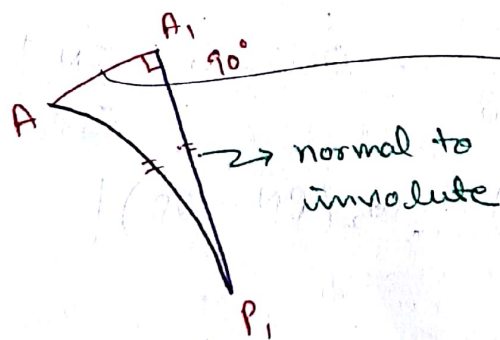 A₁
90°
A
normal to
involute
P₁